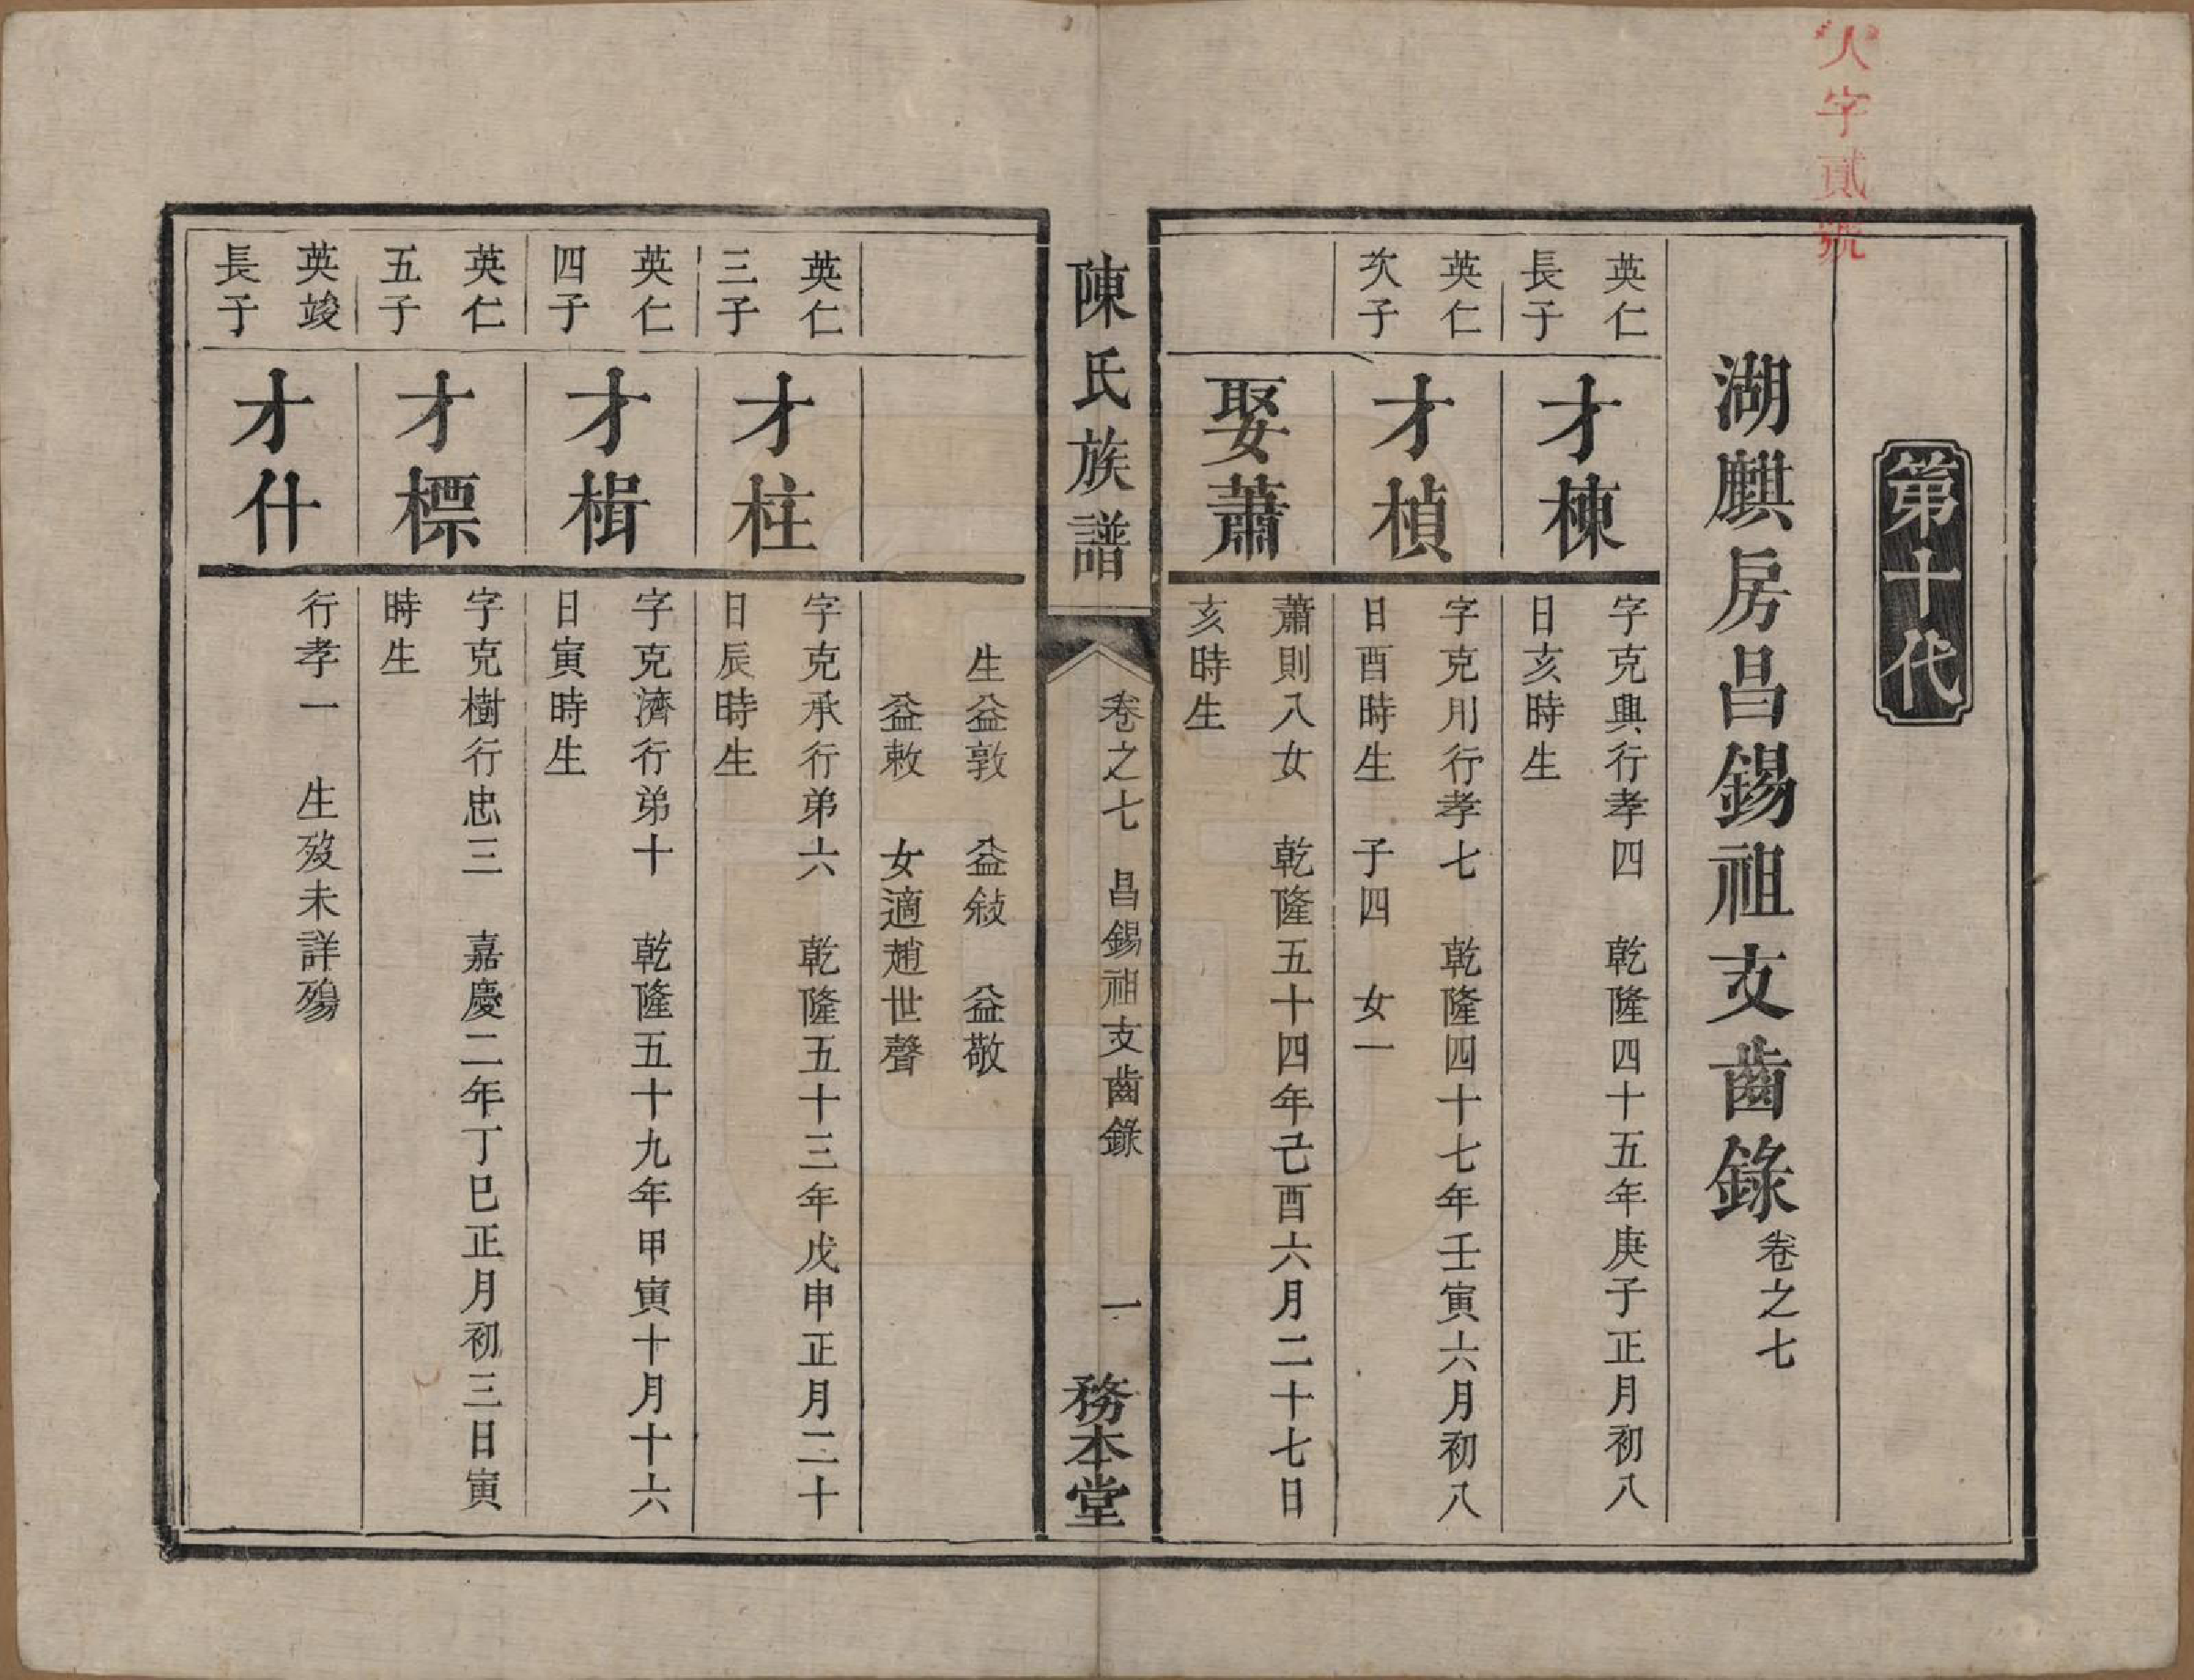 人字貳號
第十代
湖麒房昌錫祖支齒錄
卷之七
英仁
長子
才棟
字克興行孝四　乾隆四十五年庚子正月初八
日亥時生
英仁
次子
才楨
字克用行孝七　乾隆四十七年壬寅六月初八
日酉時生　子四　女一
娶蕭
蕭則入女　乾隆五十四年己酉六月二十七日
亥時生
陳氏族譜
卷之七　昌錫祖支齒錄
一
務本堂
生益敦　益敍　益敬
益敕　女適趙世聲
英仁
三子
才柱
字克承行弟六　乾隆五十三年戊申正月二十
日辰時生
英仁
四子
才楫
字克濟行弟十　乾隆五十九年甲寅十月十六
日寅時生
英仁
五子
才標
字克樹行忠三　嘉慶二年丁巳正月初三日寅
時生
英竣
長子
才什
行孝一　生歿未詳殤